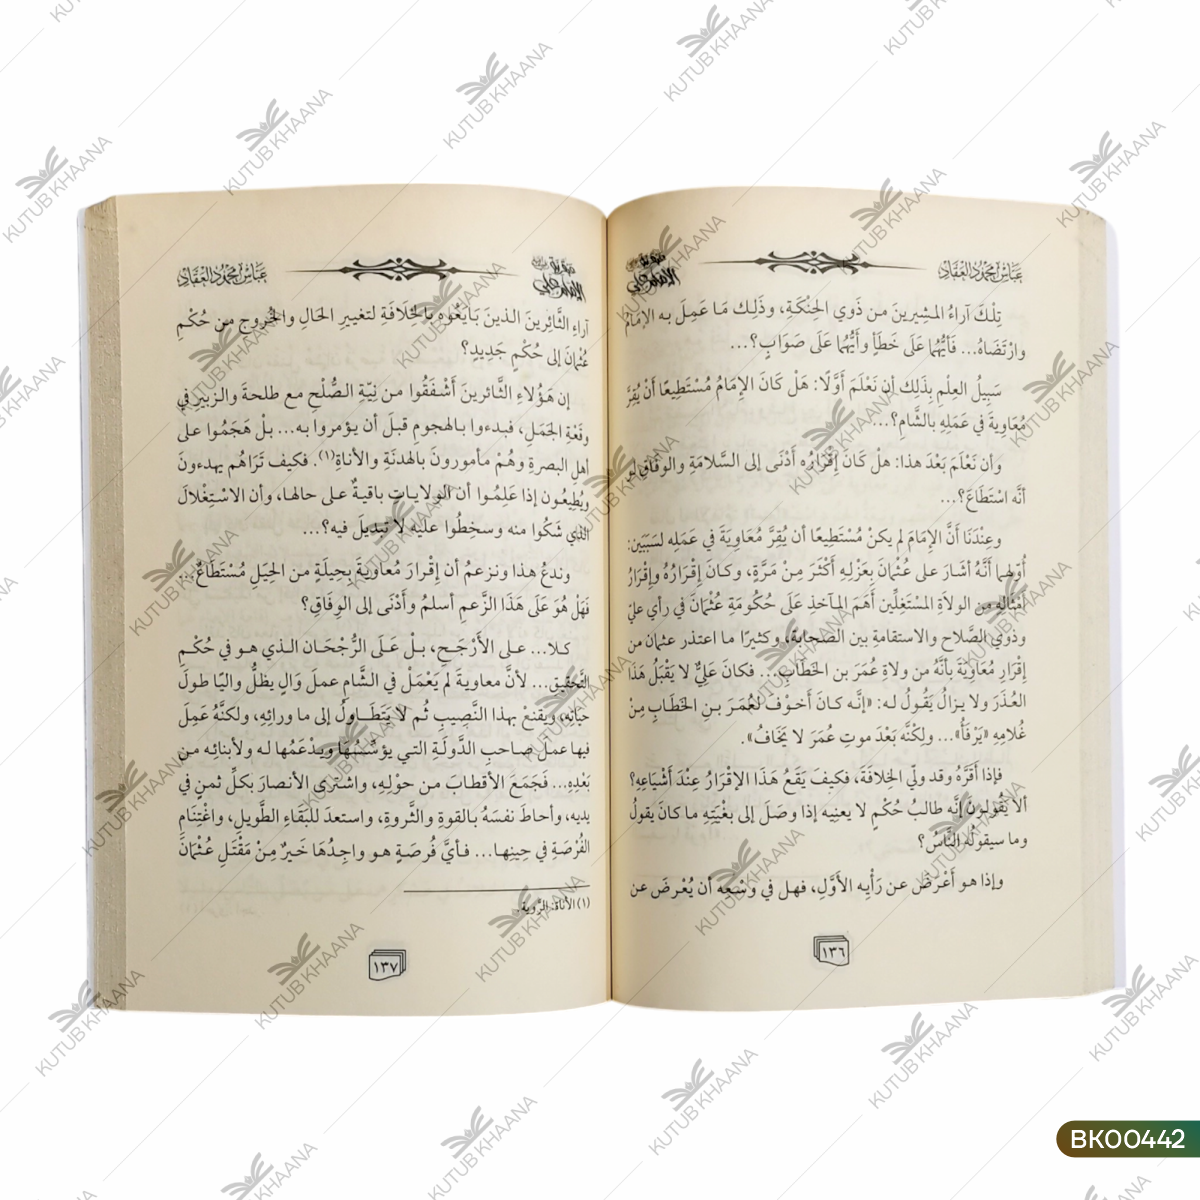 عباس محمود العقاد
عبقرية
الإمام علي
تِلْكَ آراءُ المشِيرينَ من ذَوي الحِنْكَةِ، وذَلِكَ مَا عَمِلَ به الإمَامُ
وارْتَضَاهُ... فَأَيُّهُما عَلَى خَطَأٍ وأَيُّهُما عَلَى صَوَابٍ؟...
سَبِيلُ العِلْمِ بِذَلِكِ أن نَعْلَمَ أَوَّلًا: هَلْ كَانَ الإِمَامُ مُسْتَطِيعًا أَنْ يُقِرَّ
مُعَاوِيَةَ في عَمَلِهِ بالشَّامِ؟...
وأن نَعْلَمَ بَعْدَ هذا: هلْ كَانَ إقْرَارُه أَدْنَى إلى السَّلامَةِ والوِفَاقِ لو
أنَّه اسْتَطَاعَ؟...
وعِنْدَنَا أَنَّ الإمَامَ لم يكنْ مُسْتَطِيعًا أن يُقِرَّ مُعَاوِيَةَ في عَمَلِه لسَبَبَين:
أوّلهما أنَّهُ أشَارَ على عُثْمانَ بِعَزْلِهِ أَكْثَرَ مِنْ مَرَّةٍ، وكانَ إقْرَارُهُ وإقْرَارُ
أمْثَالِه من الوِلاَةِ المُسْتَغِلِّين أَهَمَ المآخِذِ عَلَى حُكُومَةِ عُثْمَانَ في رأي عليّ
وذَوِي الصَّلاح والاستقامةِ بين الصحابة، وكثيرًا ما اعتذر عثمان من
إقْرَارِ مُعَاوِيَةَ بأنَّه من ولاةِ عُمَرَ بن الخَطَّابِ... فكانَ عَلِيٌّ لا يَقْبَلُ هَذَا
العُذَرَ ولا يزالُ يَقُولُ له: «إنَّه كانَ أَخوْفَ لعُمَرَ بنِ الخَطَّابِ مِنْ
غُلامِهِ «يَرْفَأُ»... ولكنَّه بَعْدَ موتِ عمرَ لا يَخَافُ».
فإذا أقَرَّهُ وقد ولّي الخِلافَةَ، فكيفَ يَقَعُ هَذَا الإقْرَارُ عِنْدَ أَشْيَاعِهِ؟
ألا يَقُولونَ إنَّه طالبُ حُكْمٍ لا يعنيه إذا وصَلَ إلى بغْيَتِهِ ما كانَ يقولُ
وما سيقولُه النَّاسُ؟
وإذا هو أَعْرَضَ عن رَأْيِه الأَوَّلِ، فهل في وِسْعِه أن يُعْرِضَ عن
١٣٦
عبقرية
الإمام علي
عباس محمود العقاد
آراءِ الثَّائِرينَ الذينَ بَايَعُوه بالخِلَافَةِ لتغييرِ الحَالِ والخُروجِ من حُكْمِ
عُثْمَانَ إلى حُكْمٍ جَدِيدٍ؟
إن هَؤُلاءِ الثَّائرينَ أَشْفَقُوا من نِيَّةِ الصُّلْحِ مع طلحةَ والزبيرِ في
وقْعَةِ الجَمَلِ، فبدءوا بالهجومِ قبلَ أن يؤمروا به... بلْ هَجَمُوا على
أهلِ البصرةِ وهُمْ مأمورونَ بالهدنَةِ والأناةِ(١). فكيف تَرَاهُم يهدءونَ
ويُطِيعُون إذا عَلِمُوا أن الولاياتِ باقيةٌ على حالها، وأن الاسْتِغْلالَ
الذي شَكُوا منه وسخِطُوا عليه لا تبديلَ فيه؟...
وندعُ هذا ونزعمُ أن إقْرارَ مُعاويةَ بِحِيلَةٍ من الحِيَلِ مُسْتَطَاعٌ...
فَهَلْ هُوَ عَلَى هَذَا الزَّعمِ أسلمُ وأَدْنَى إلى الوِفَاقِ؟
كلا... على الأَرْجَحِ، بلْ عَلَى الرُّجْحَانِ الذي هو في حُكْمِ
التَّحقِيقِ... لأنَّ معاويةَ لم يَعْمَلْ في الشَّامِ عملَ وَالٍ يظلُّ واليًا طولَ
حيَاتِه، ويقنَعْ بهذا النَّصِيبِ ثُم لا يَتَطَاولُ إلى ما ورائِهِ، ولكنَّهُ عَمِلَ
فيها عملَ صاحبِ الدَّولَةِ التي يؤسِّسُهَا ويدْعَمُها له ولأبنائِه من
بَعْدِهِ... فَجَمَعَ الأقطابَ من حوْلِهِ، واشترى الأنصارَ بكلِّ ثمنٍ في
يديه، وأحاطَ نفسَهُ بالقوةِ والثَّروةِ، واستعدَ للبَقَاءِ الطَّويلِ، واغْتِنَامِ
الفُرْصَةِ في حِينِها... فأيَّ فُرصَةٍ هو واجِدُهَا خَيرٌ مِنْ مَقْتَلِ عُثْمَانَ
(١) الأناة: الرَّوية.
١٣٧
KUTUB KHAANA
BK00442